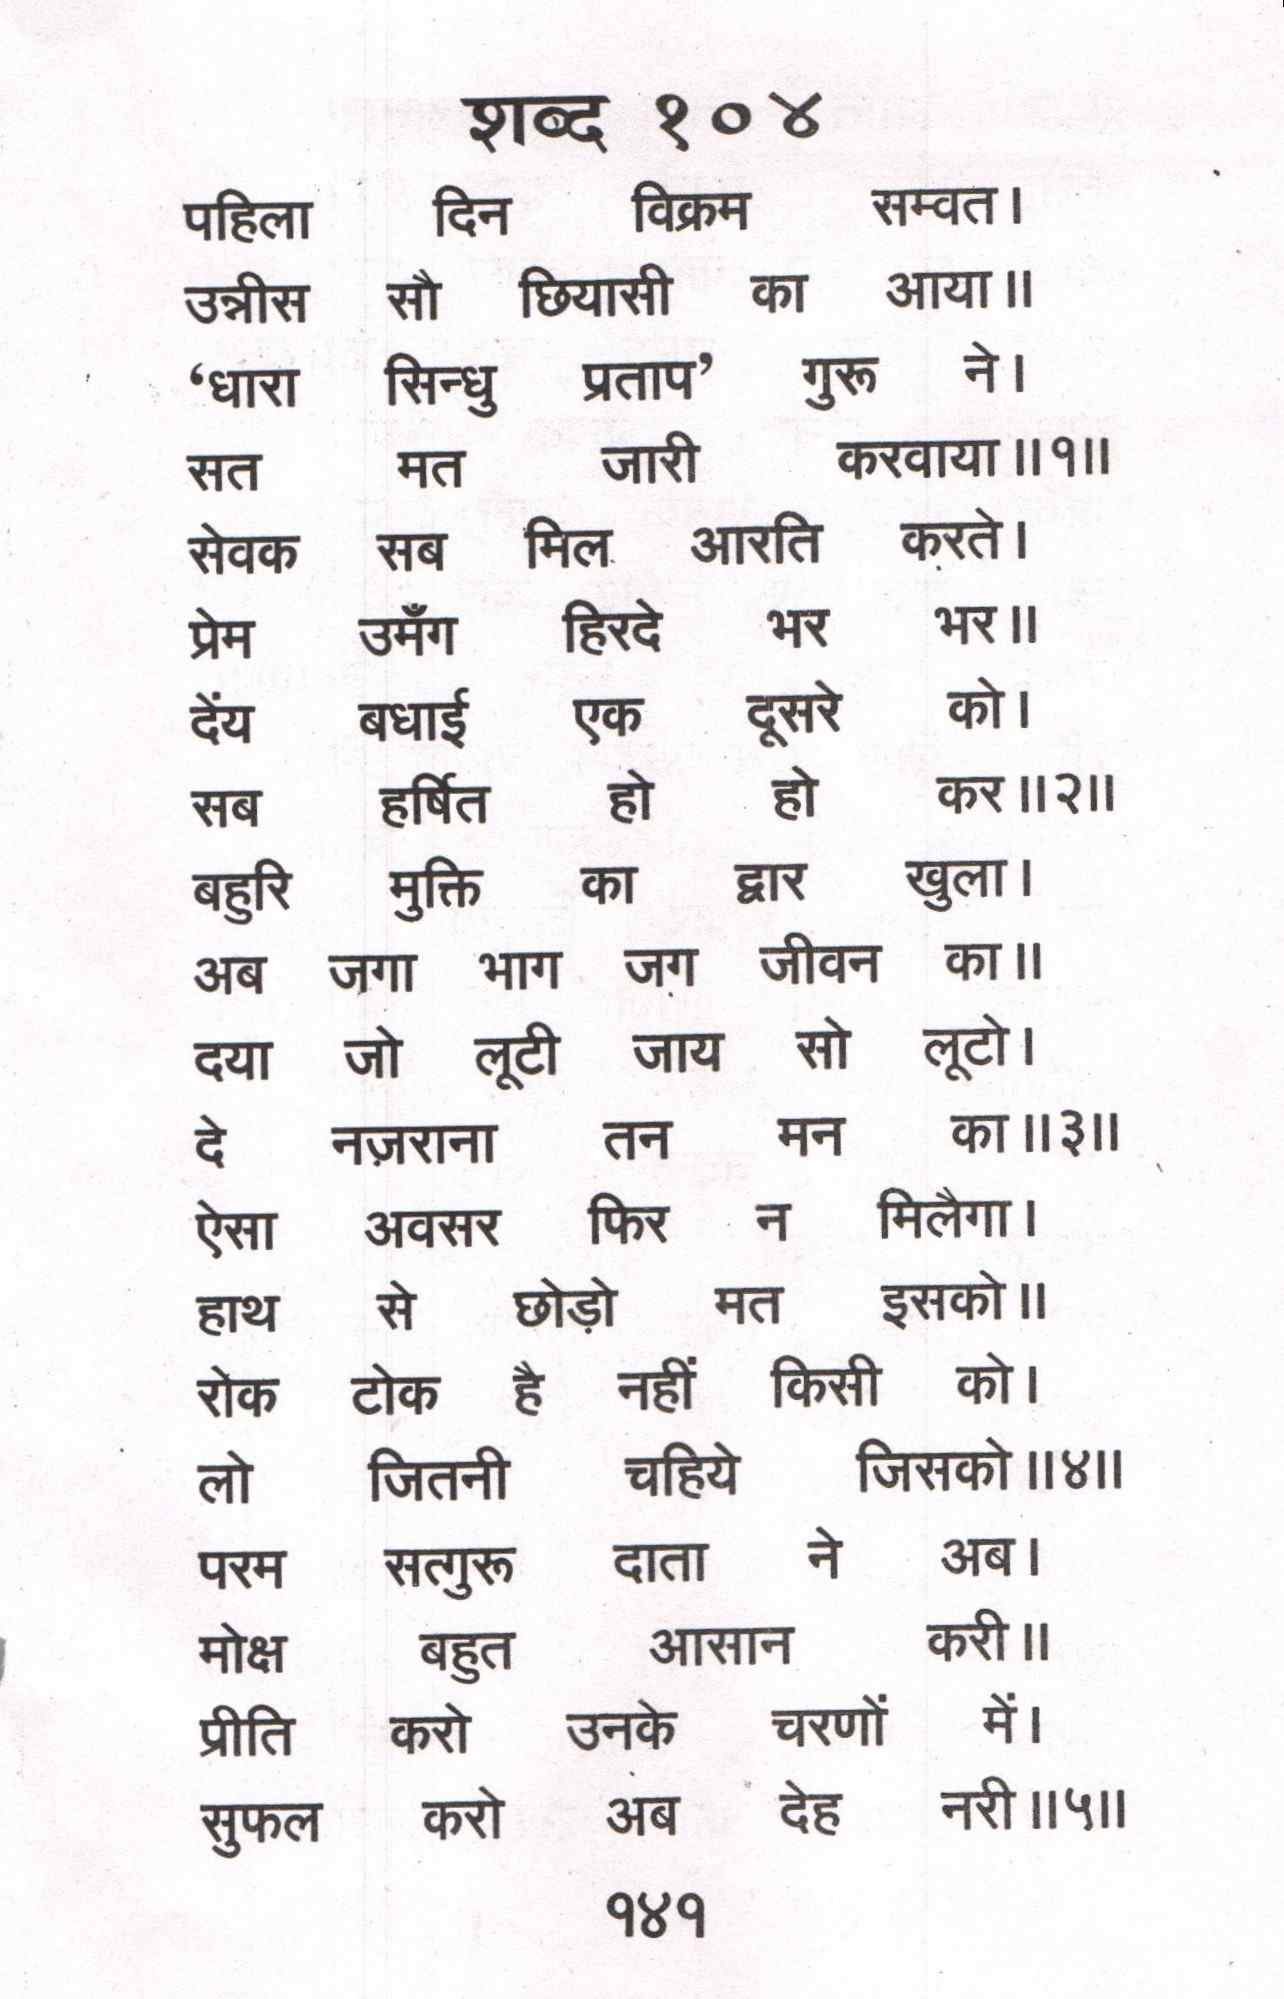 शब्द १०४
पहिला दिन विक्रम सम्वत।
उन्नीस सौ छियासी का आया॥
‘धारा सिन्धु प्रताप’ गुरू ने।
सत मत जारी करवाया॥१॥
सेवक सब मिल आरति करते।
प्रेम उमँग हिरदे भर भर॥
देंय बधाई एक दूसरे को।
सब हर्षित हो हो कर॥२॥
बहुरि मुक्ति का द्वार खुला।
अब जगा भाग जग जीवन का॥
दया जो लूटी जाय सो लूटो।
दे नज़राना तन मन का॥३॥
ऐसा अवसर फिर न मिलैगा।
हाथ से छोड़ो मत इसको॥
रोक टोक है नहीं किसी को।
लो जितनी चहिये जिसको॥४॥
परम सत्गुरू दाता ने अब।
मोक्ष बहुत आसान करी॥
प्रीति करो उनके चरणों में।
सुफल करो अब देह नरी॥५॥
१४१